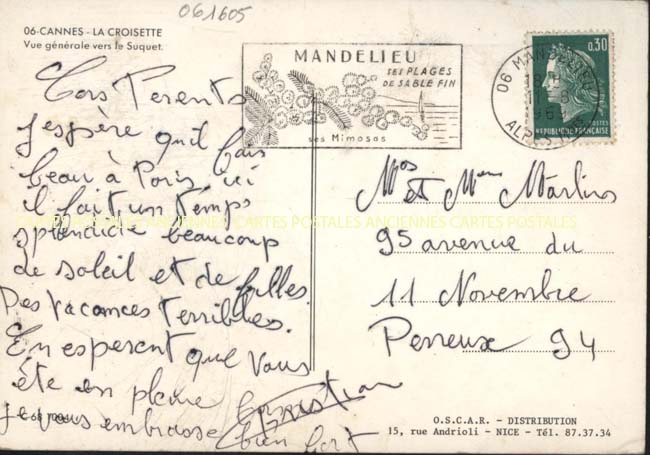 061605
06-CANNES - LA CROISETTE
Vue générale vers le Suquet.
MANDELIEU
SES PLAGES
DE SABLE FIN
ses Mimosas
0,30
POSTES
REPUBLIQUE FRANÇAISE
06 MANDELIEU
ALP
Cers Parents
J'espère qu'il fais
beau à Paris ici
il fait un temps
splendide beaucoup
de soleil et de filles.
Des vacances terribles.
En esperent que vous
éte en pleine
je vous embrasse bien fort
Christian
Mos et Mme Martins
95 avenue du
11 Novembre
Perreux 94
CARTES POSTALES ANCIENNES CARTES POSTALES
O.S.C.A.R. - DISTRIBUTION
15, rue Andrioli - NICE - Tél. 87.37.34